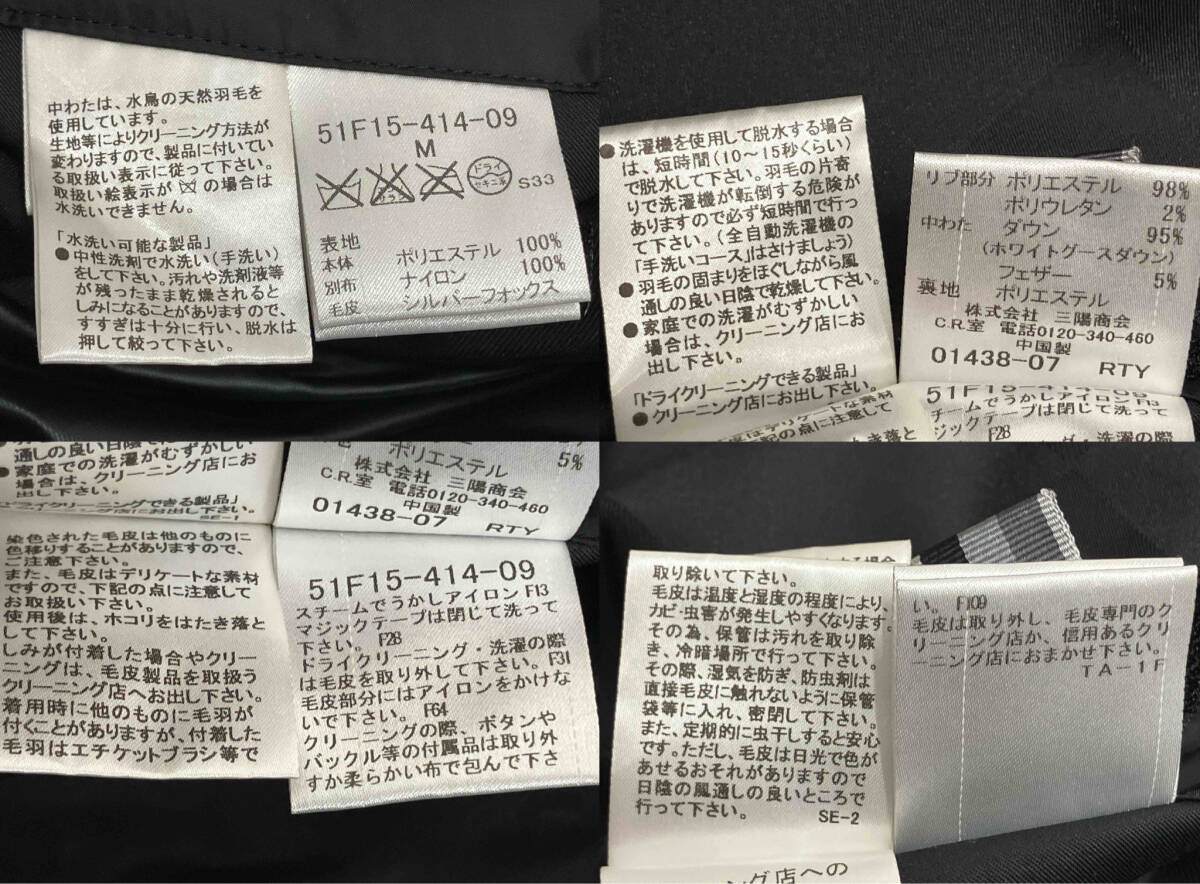 中わたは、水鳥の天然羽毛を
使用しています。
生地等によりクリーニング方法が
変わりますので、製品に付いてい
る取扱い表示に従って下さい。
取扱い絵表示が の場合は
水洗いできません。
「水洗い可能な製品」
●中性洗剤で水洗い(手洗い)
をして下さい。汚れや洗剤液等
が残ったまま乾燥されると
しみになることがありますので、
すすぎは十分に行い、脱水は
押して絞って下さい。
51F15-414-09
M
エンソ サラシ ドライ セキユ系 S33
表地
本体 ポリエステル 100%
別布 ナイロン 100%
毛皮 シルバーフォックス
●洗濯機を使用して脱水する場合
は、短時間(10~15秒くらい)
で脱水して下さい。羽毛の片寄
りで洗濯機が転倒する危険が
ありますので必ず短時間で行っ
て下さい。(全自動洗濯機の
「手洗いコース」はさけましょう)
●羽毛の固まりをほぐしながら風
通しの良い日陰で乾燥して下さい。
●家庭での洗濯がむずかしい
場合は、クリーニング店にお
出し下さい。
「ドライクリーニングできる製品」
●クリーニング店にお出し下さい。
リブ部分 ポリエステル 98%
ポリウレタン 2%
中わた ダウン 95%
(ホワイトグースダウン)
フェザー 5%
裏地 ポリエステル
株式会社 三陽商会
C.R.室 電話0120-340-460
中国製
01438-07 RTY
51F15-414-09
チームでうかしアイロン F13
ジックテープは閉じて洗って
F28
皮はデリケートな素材
下記の点に注意して
通しの良い日陰で
●家庭での洗濯がむずかしい
場合は、クリーニング店にお
出し下さい。
ドライクリーニングできる製品」
SE-1
ポリエステル 5%
株式会社 三陽商会
C.R.室 電話0120-340-460
中国製
01438-07 RTY
染色された毛皮は他のものに
色移りすることがありますので、
ご注意下さい。
また、毛皮はデリケートな素材
ですので、下記の点に注意して
お取扱い下さい。
使用後は、ホコリをはたき落と
して下さい。
しみが付着した場合やクリー
ニングは、毛皮製品を取扱う
クリーニング店へお出し下さい。
着用時に他のものに毛羽が
付くことがありますが、付着した
毛羽はエチケットブラシ等で
51F15-414-09
スチームでうかしアイロン F13
マジックテープは閉じて洗って
下さい。 F28
ドライクリーニング・洗濯の際
は毛皮を取り外して下さい。 F31
毛皮部分にはアイロンをかけな
いで下さい。 F64
クリーニングの際、ボタンや
バックル等の付属品は取り外
すか柔らかい布で包んで下さ
取り除いて下さい。
毛皮は温度と湿度の程度により、
カビ・虫害が発生しやすくなります。
その為、保管は汚れを取り除
き、冷暗場所で行って下さい。
その際、湿気を防ぎ、防虫剤は
直接毛皮に触れないように保管
袋等に入れ、密閉して下さい。
また、定期的に虫干しすると安心
です。ただし、毛皮は日光で色が
あせるおそれがありますので
日陰の風通しの良いところで
行って下さい。 SE-2
い。 F109
毛皮は取り外し、毛皮専門のク
リーニング店か、信用あるクリ
ーニング店におまかせ下さい。
TA-1F
ング店への